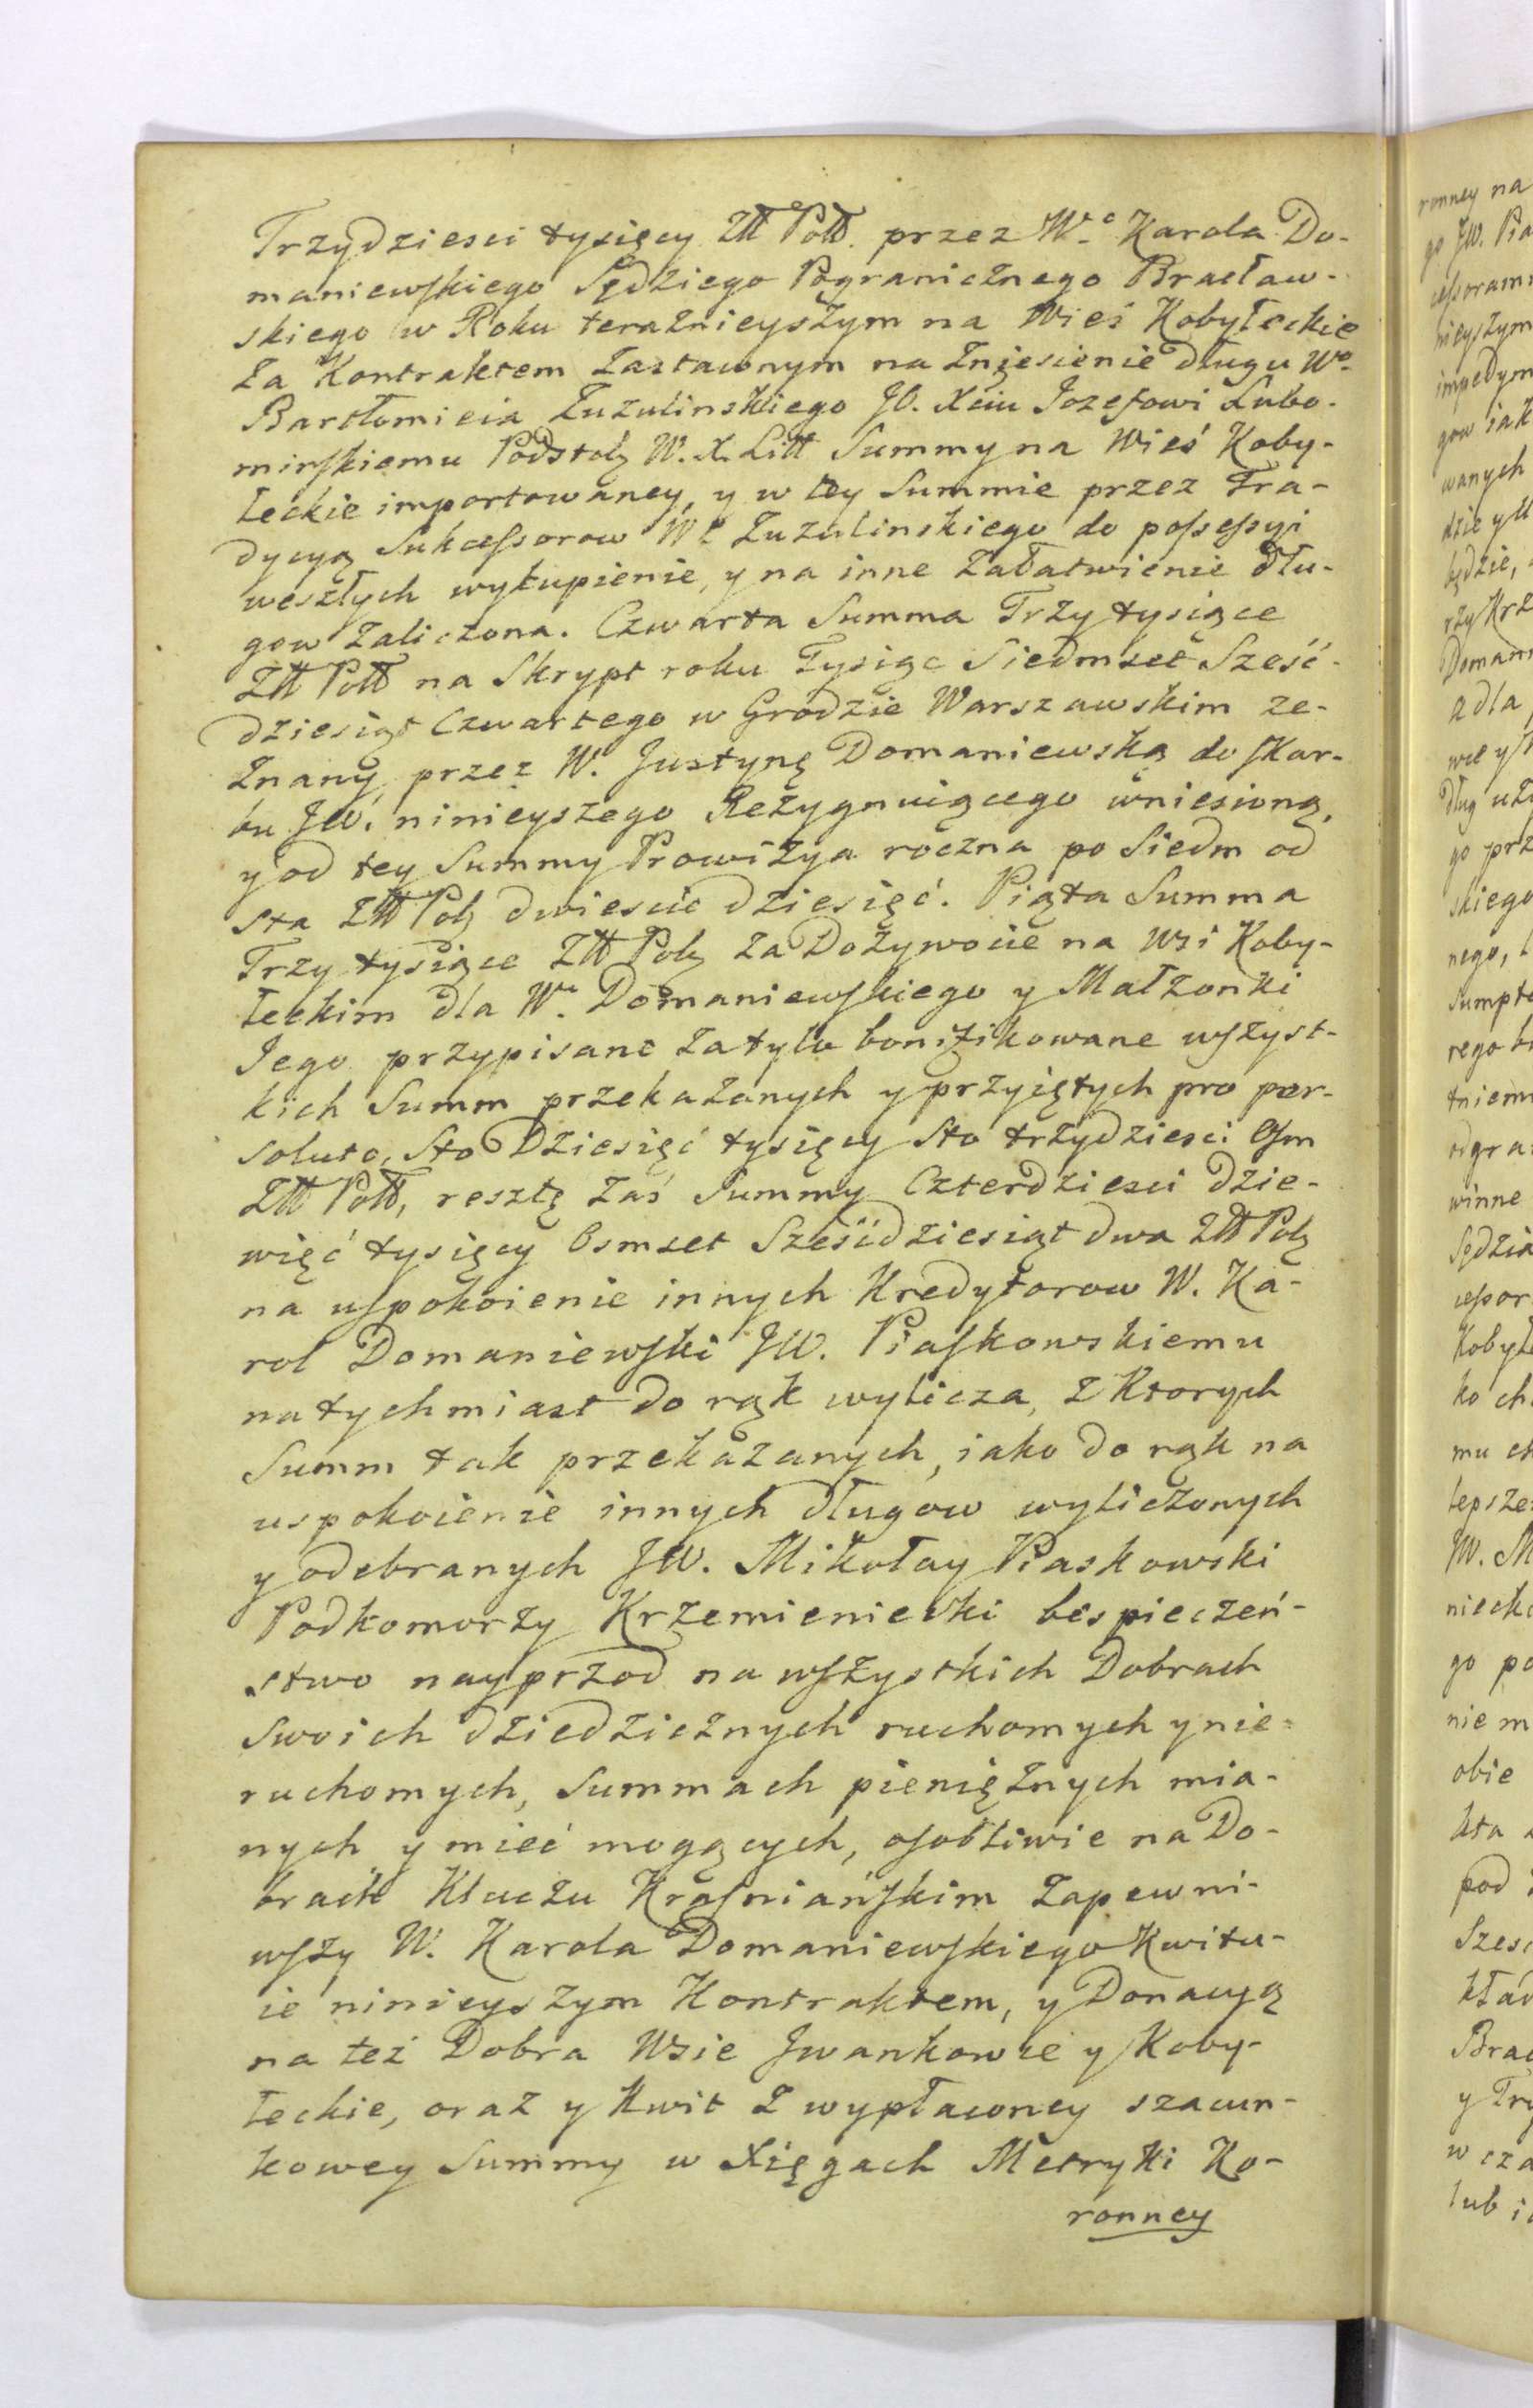 Trzydziesci tysięcy Złł Poll. przez W.o Karola Do-
maniewskiego Sędziego Pogranicznego Bracław-
skiego w Roku teraznieyszym na Wieś Kobyłeckie
Za Kontraktem Zastawnym na Zniesienie długu Wo.
Barthłomieia Zuzulinskiego JO. Xciu Jozefowi Lubo-
mirskiemu Podstolę W. X. Litt Summy na Wieś Koby-
łeckie importowaney, y w tey Summie przez Tra-
dycyą Sukcessorow W. Zuzulinskiego do possessyi
weszłych wykupienie, y na inne Załatwienie dłu-
gow Zaliczona. Czwarta Summa Trzy tysiące
Złł Poll na Skrypt roku Tysiąc Siedmset Sześć-
dziesiąt Czwartego w Grodzie Warszawskim ze-
Znany przez W. Justynę Domaniewską do Skar-
bu JW. ninieyszego Rezygnuiącego wniesioną,
y od tey Summy Prowizya roczna po Siedm od
sta Złł Pol dwieście dziesięć. Piąta Summa
Trzy tysiące Złł Pol Za Dożywocie na Wsi Koby-
łeckim dla W. Domaniewskiego y Małzonki
Jego przypisane Zatylo bonifikowane wszyst-
kich Summ przekazanych y przyiętych pro per-
soluto, Sto Dziesięć tysięcy Sto trzydziesci Osm
Złł Poll, resztę Zaś Summy Czterdziesci dzie-
więć tysięcy Osmset Sześćdziesiąt dwa Złł Pol
na uspokoienie innych Kredytorow W. Ka-
rol Domaniewski JW. Piaskowskiemu
natychmiast do rąk wylicza, Z Ktorych
Summ tak przekazanych, iako do rąk na
uspokoienie innych długow wyliczonych
y odebranych JW. Mikołay Piaskowski
Podkomorzy Krzemieniecki bespieczeń-
stwo nayprzod na wszystkich Dobrach
Swoich dziedzicznych ruchomych y nie-
ruchomych, Summach pieniężnych mia-
nych y mieć mogących, osobliwie na Do-
brach Kluczu Krasniańskim Zapewni-
wszy W. Karola Domaniewskiego Kwitu-
ie ninieyszym Kontraktem, y Donacyą
na też Dobra Wsie Jwankowce y Koby-
łeckie, oraz y Kwit Z wypłaconey szacun-
kowey Summy w Xięgach Metryki Ko-
ronney